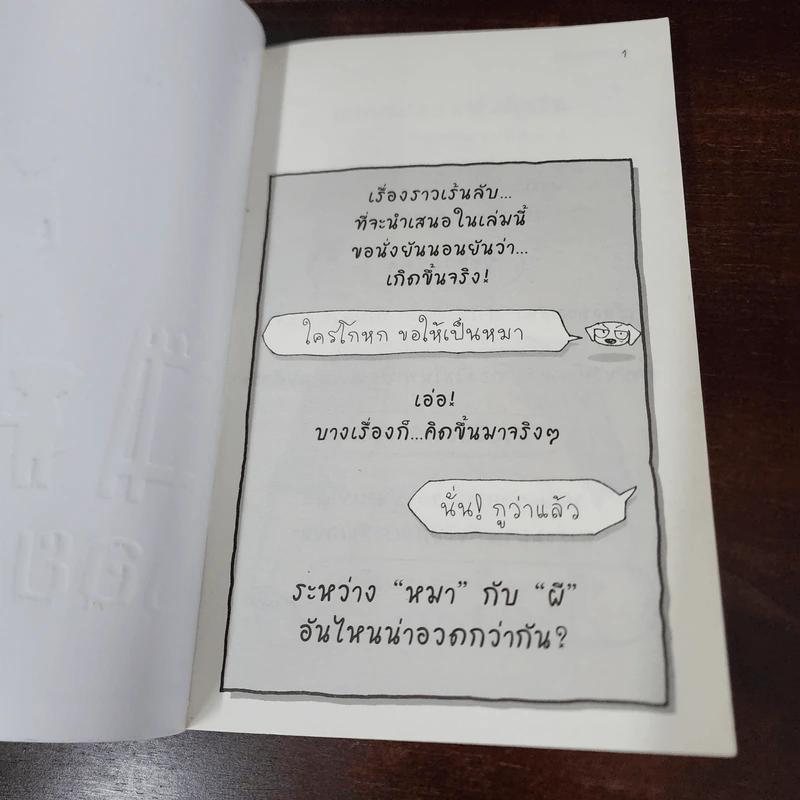 1
เรื่องราวเร้นลับ...
ที่จะนำเสนอในเล่มนี้
ขอนั่งยันนอนยันว่า...
เกิดขึ้นจริง!
ใครโกหก ขอให้เป็นหมา
เอ่อ!
บางเรื่องก็...คิดขึ้นมาจริงๆ
นั่น! กูว่าแล้ว
ระหว่าง “หมา” กับ “ผี”
อันไหนน่าอวดกว่ากัน?